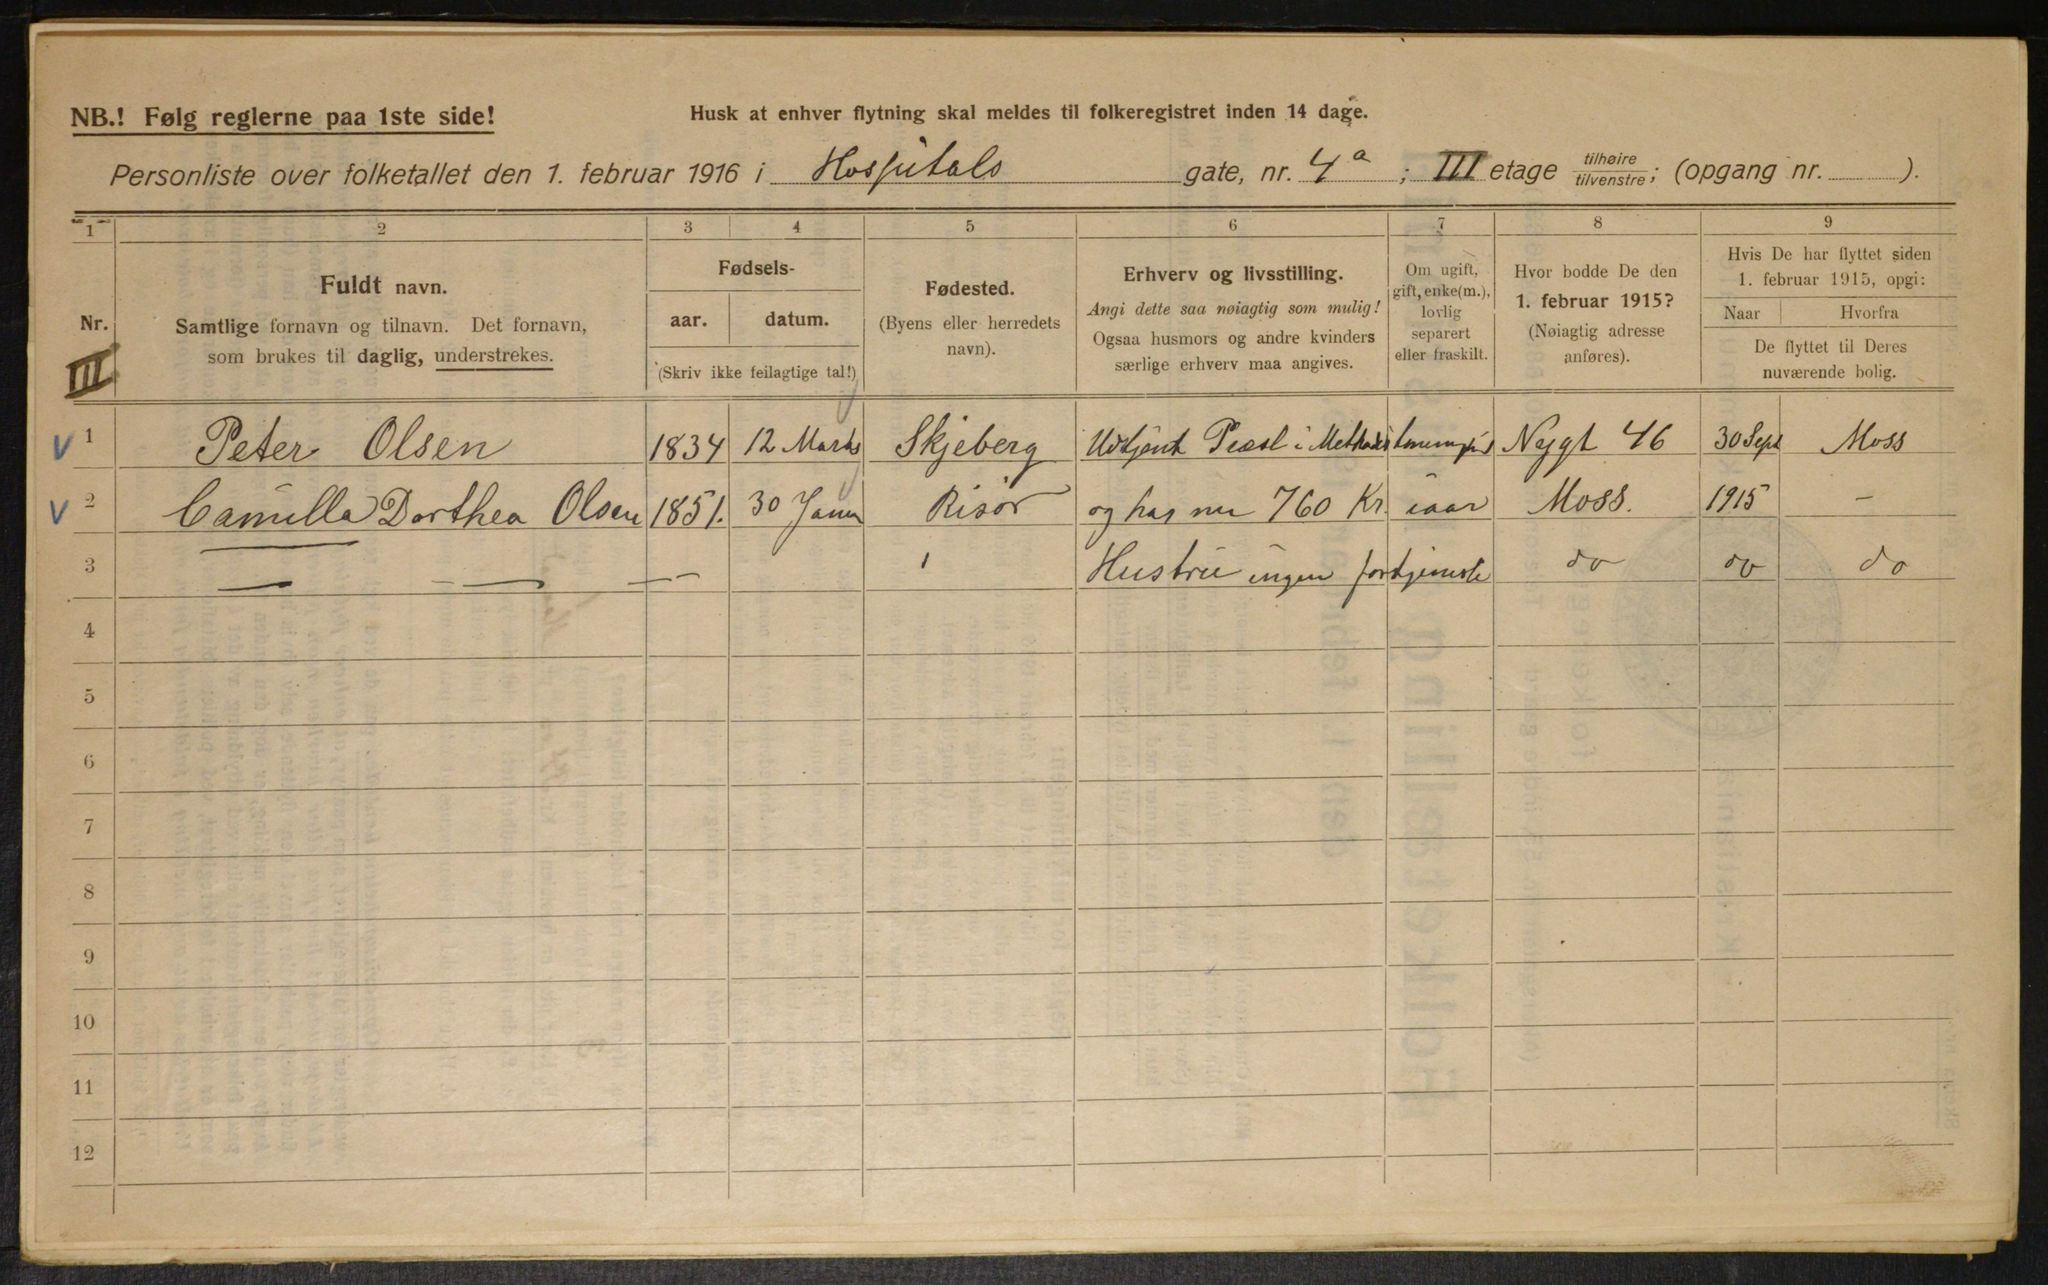 NB.! Følg reglerne paa 1ste side!
Husk at enhver flytning skal meldes til folkeregistret inden 14 dage.
Personliste over folketallet den 1. februar 1916 i Hospitals gate, nr. 4a ; III etage tilhøire tilvenstre; (opgang nr. ).
1 2 3 4 5 6 7 8 9
Nr.
III
Fuldt navn.
Samtlige fornavn og tilnavn. Det fornavn,
som brukes til daglig, understrekes.
Fødsels-
aar. datum.
(Skriv ikke feilagtige tal!)
Fødested.
(Byens eller herredets
navn).
Erhverv og livsstilling.
Angi dette saa nøiagtig som mulig!
Ogsaa husmors og andre kvinders
særlige erhverv maa angives.
Om ugift,
gift, enke(m.),
lovlig
separert
eller fraskilt.
Hvor bodde De den
1. februar 1915?
(Nøiagtig adresse
anføres).
Hvis De har flyttet siden
1. februar 1915, opgi:
Naar Hvorfra
De flyttet til Deres
nuværende bolig.
V 1 Peter Olsen 1834 12 Marts Skjeberg Udtjent Præst i Nygt 46 30 Sept Moss
V 2 Camilla Dorthea Olsen 1851. 30 Janu Risør og har nu 760 Kr. iaar Moss. 1915 —
3 — — — Hustru ingen fortjeneste do do do
4
5
6
7
8
9
10
11
12